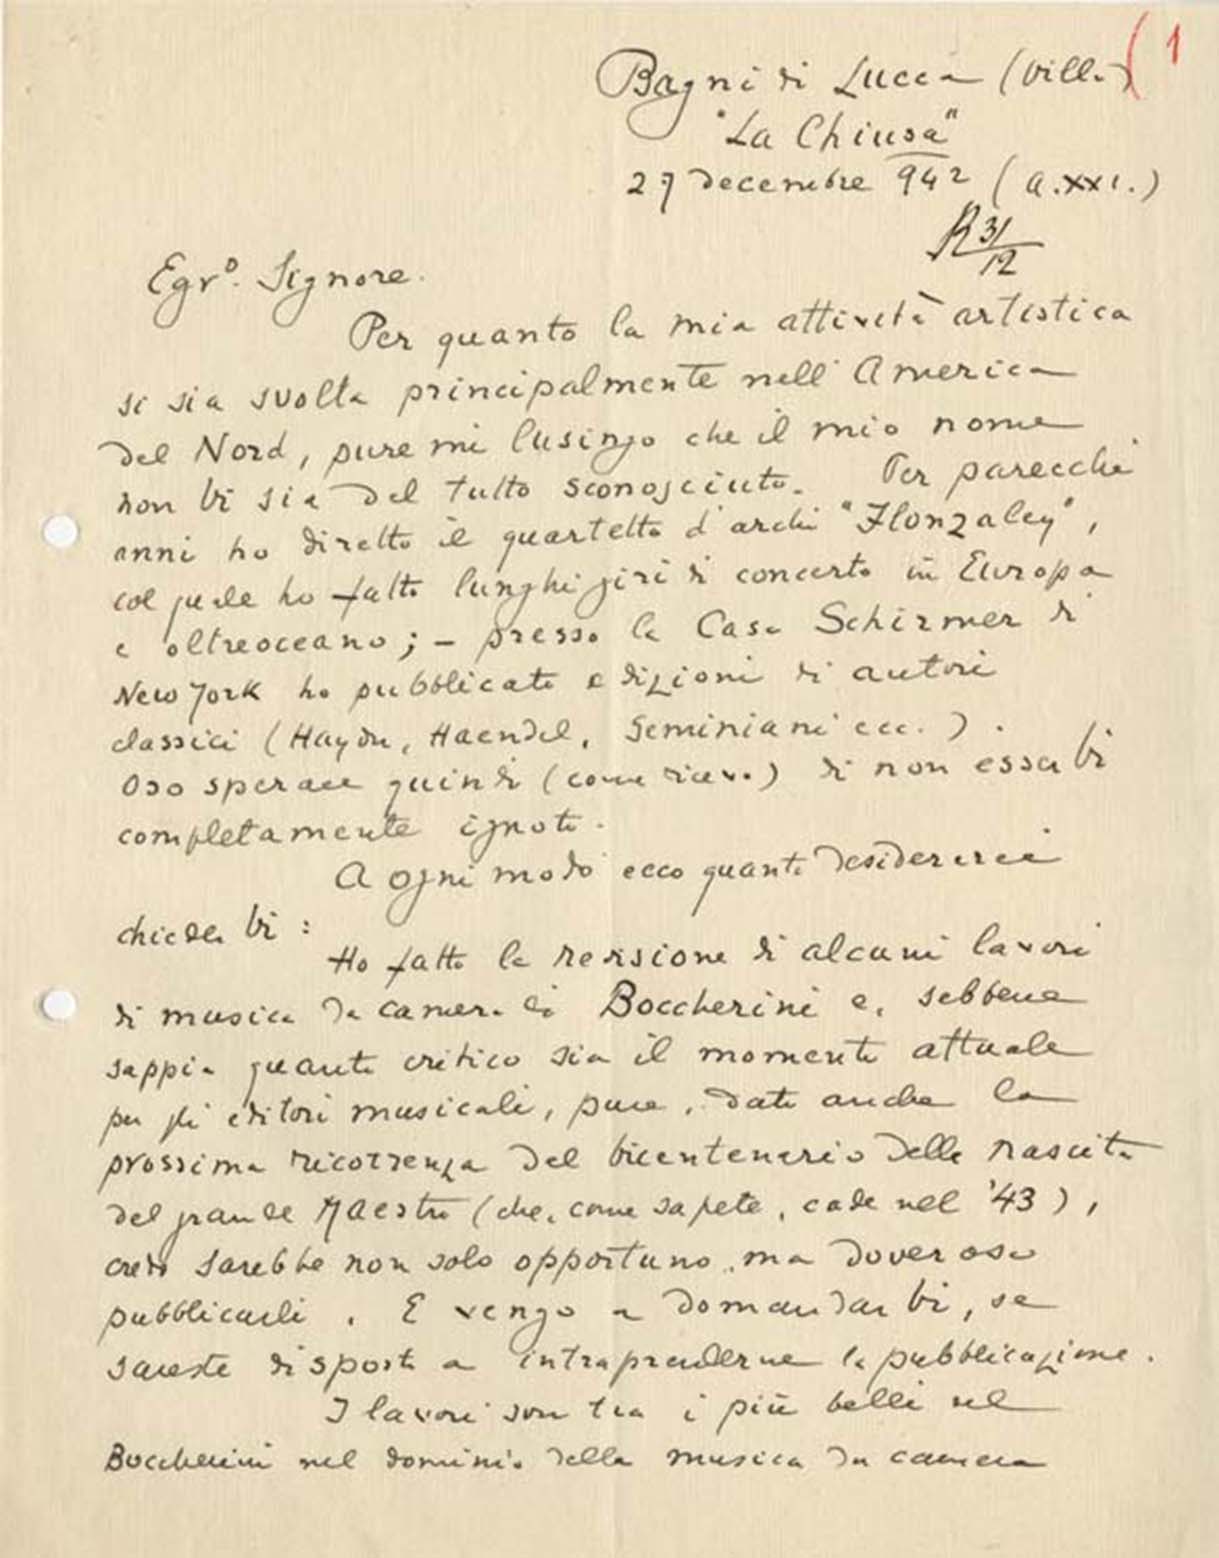 1
Bagni di Lucca (Villa)
"La Chiusa"
27 decembre 942 (a. XXI.)
R 31/12
Egrº. Signore.
Per quanto la mia attività artistica
si sia svolta principalmente nell'America
del Nord, pure mi lusingo che il mio nome
non Vi sia del tutto sconosciuto. Per parecchi
anni ho diretto il quartetto d'archi "Flonzaley",
col quale ho fatto lunghi giri di concerto in Europa
e oltreoceano; - presso la Casa Schirmer di
New York ho pubblicato edizioni di autori
classici (Haydn, Haendel, Geminiani ecc.).
Oso sperare quindi (come) di non esserVi
completamente ignoto.
A ogni modo ecco quanto desidererei
chiederVi:
Ho fatto la revisione di alcuni lavori
di musica da camera di Boccherini e, sebbene
sappia quanto critico sia il momento attuale
per gli editori musicali, pure, dato anche la
prossima ricorrenza del bicentenario della nascita
del grande Maestro (che, come sapete, cade nel '43),
credo sarebbe non solo opportuno, ma doveroso
pubblicarli. E vengo a domandarVi, se
sareste disposti a intraprenderne la pubblicazione.
I lavori son tra i più belli del
Boccherini nel dominio della musica da camera